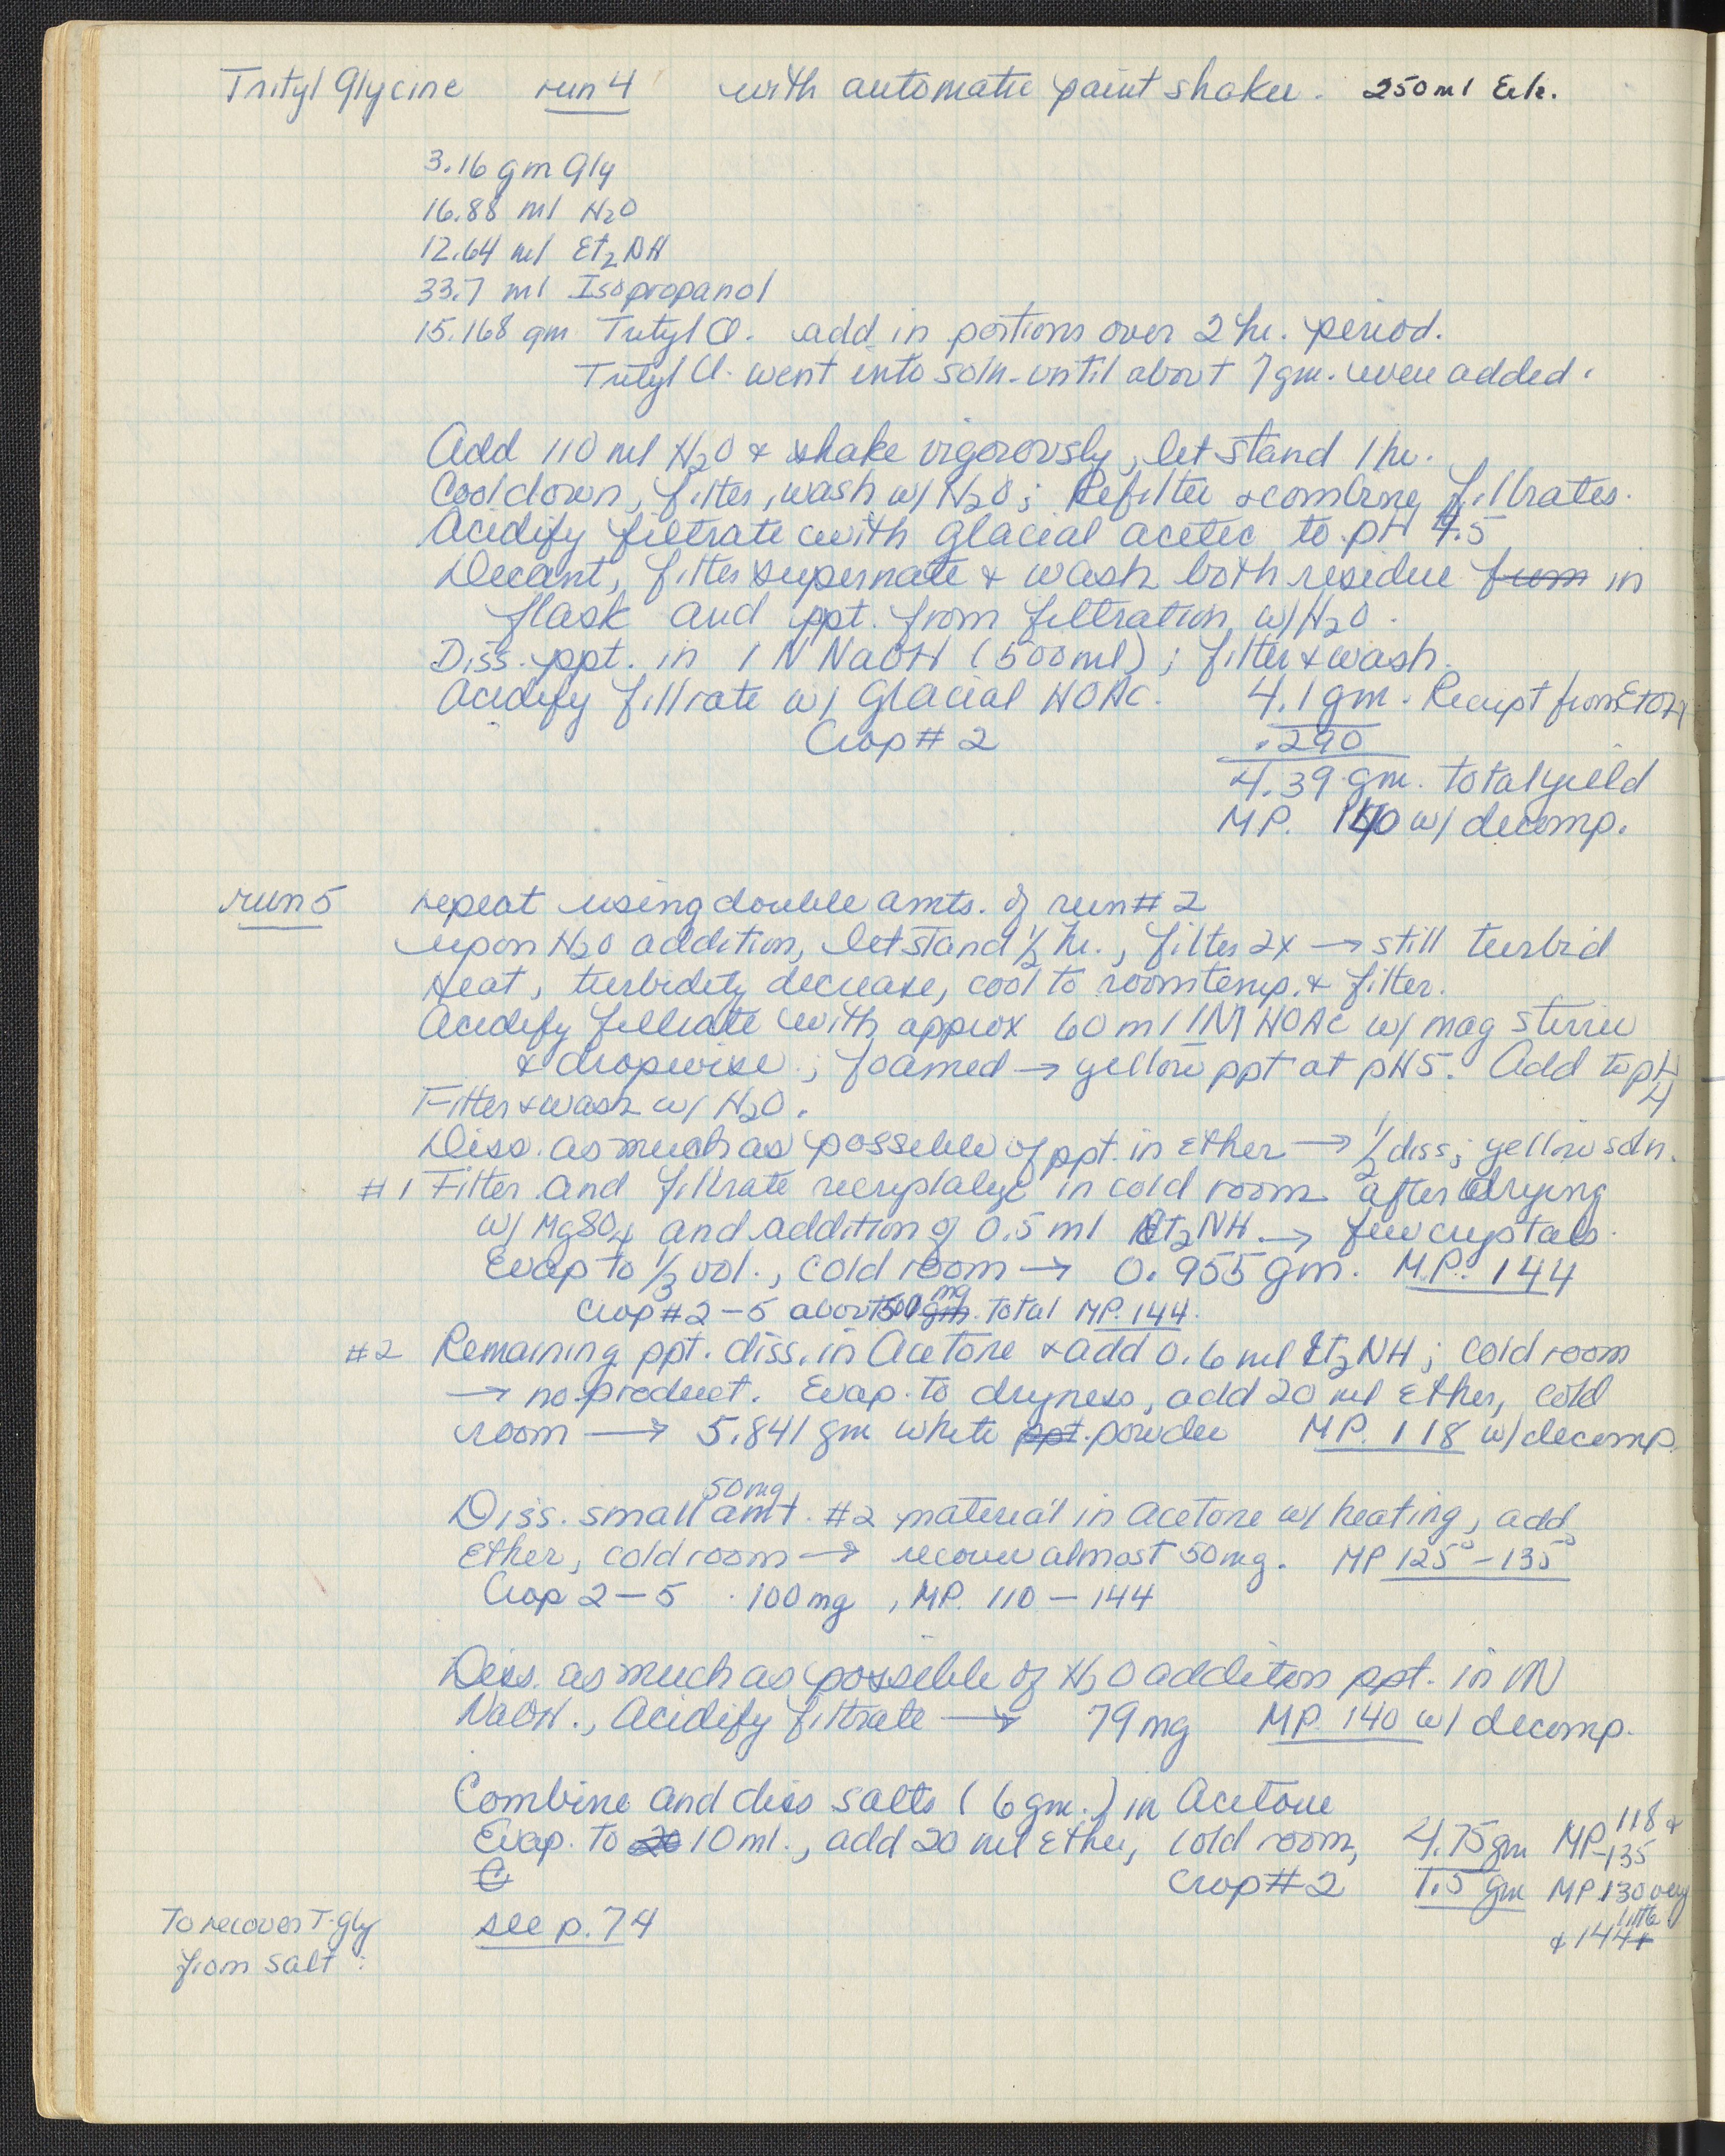 Trityl Glycine run 4 with automatic paint shaker. 250 ml Erle.
3.16 gm Gly
16.88 ml H2O
12.64 ml Et2NH
33.7 ml Isopropanol
15.168 gm Trityl Cl. add in portions over 2 hr. period.
Trityl Cl. went into soln. until about 7 gm. were added.
Add 110 ml H2O & shake vigorously, let stand 1 hr.
Cool down, filter, wash w/ H2O; Refilter & combine filtrates.
Acidify filtrate with glacial acetic to pH 4.5
Decant, filter supernate & wash both residue from in
flask and ppt. from filtration w/ H2O.
Diss. ppt. in 1 N NaOH (500 ml); filter & wash.
Acidify filtrate w/ Glacial HOAc. 4.1 gm. Recryst from EtOH
Crop # 2 .290
4.39 gm. total yield
MP. 140 w/ decomp.
run 5 repeat using double amts. of run # 2
upon H2O addition, let stand 1/2 hr., filter 2x → still turbid
Heat, turbidity decrease, cool to room temp. & filter.
Acidify filtrate with approx 60 ml 1M HOAc w/ mag stirrer
& dropwise; foamed → yellow ppt at pH 5. Add to pH
4
Filter & wash w/ H2O.
Diss. as much as possible of ppt. in ether → 1/2 diss; yellow soln.
# 1 Filter and filtrate recrystalyze in cold room after drying
w/ MgSO4 and addition of 0.5 ml Et2NH → few crystals.
Evap to 1/3 vol., cold room → 0.955 gm. MP. 144
mg
Crop # 2-5 about 500 gm. total MP. 144.
#2 Remaining ppt. diss. in Acetone & add 0.6 ml Et2NH; cold room
→ no product. Evap. to dryness, add 20 ml Ether, cold
room → 5.841 gm white ppt. powder MP. 118 w/ decomp.
50 mg
Diss. small amt. #2 material in acetone w/ heating, add
Ether, cold room → recover almost 50 mg. MP 125° - 135°
Crop 2 - 5 . 100 mg , MP. 110 - 144
Diss. as much as possible of H2O addition ppt. in 1N
NaOH., Acidify filtrate → 79 mg MP. 140 w/ decomp.
Combine and diss salts ( 6 gm.) in Acetone
Evap. to 20 10 ml., add 20 ml Ether, cold room, 4.75 gm MP 118 &
-135
C Crop # 2 1.5 gm MP 130 very
little
& 144
To recover T. gly see p. 74
from salt :